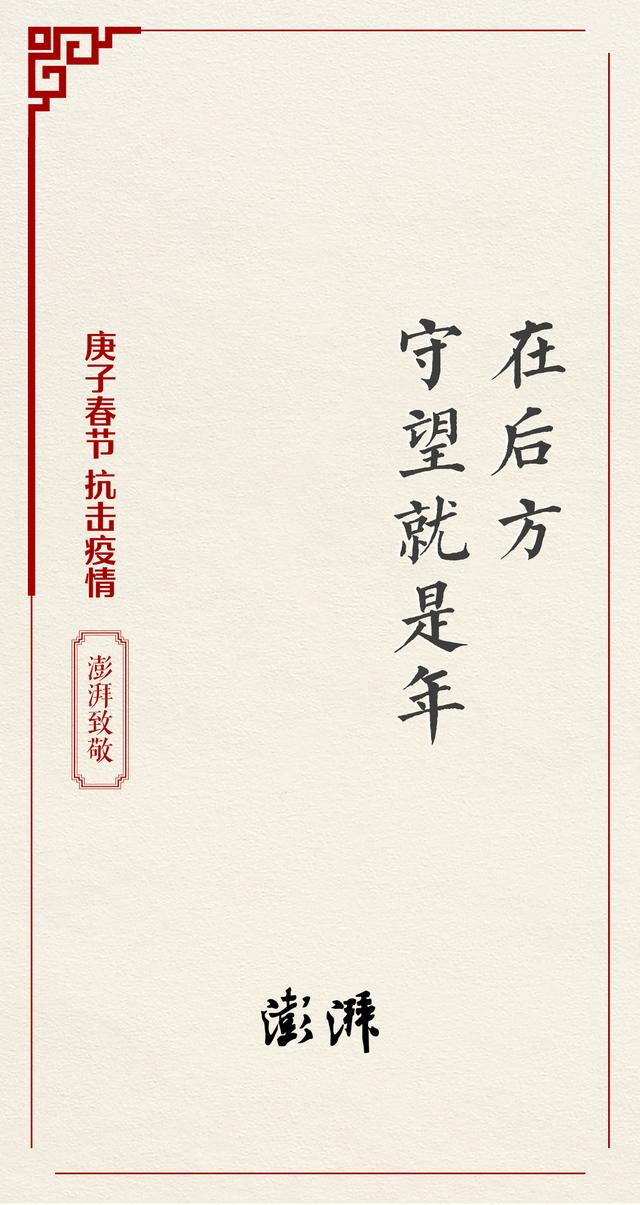 在后方
守望就是年
庚子春节 抗击疫情
澎湃致敬
澎湃